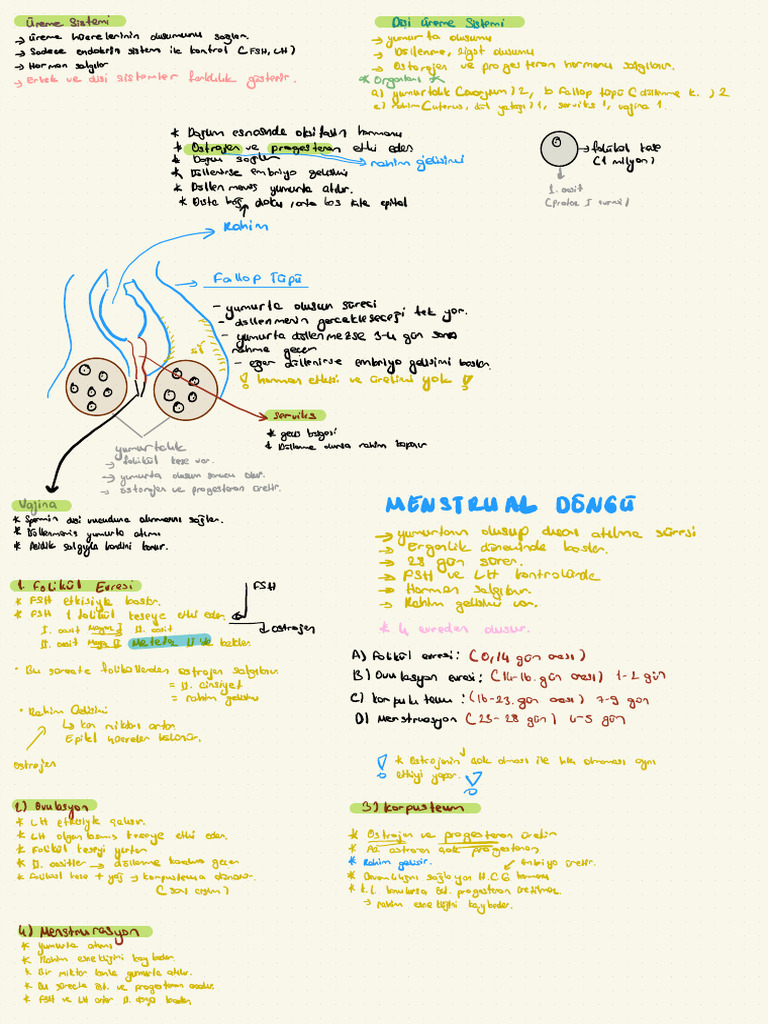 Üreme Sistemi
→ üreme hücrelerinin oluşumunu sağlar.
→ Sadece endokrin sistem ile kontrol (FSH, LH)
→ Hormon salgılar
→ Erkek ve dişi sistemler farklılık gösterir.
Dişi Üreme Sistemi
→ yumurta oluşumu
→ Döllenme, zigot oluşumu
→ Östrojen ve progesteron hormonu salgılar.
* Organları *
a) yumurtalık (ovaryum) 2, b Fallop tüpü (döllenme k.) 2
c) rahim (uterus, döl yatağı) 1, serviks 1, vajina 1.
* Doğum esnasında oksitosin hormonu
* Östrojen ve progesteron etki eder
→ rahim gelişimi
* Doğum sağlar
* Döllenirse embriyo gelişimi
* Döllenmemiş yumurta atılır.
* Dışta bağ doku, orta kas içte epitel
→ folikül kese
(1 milyon)
1. oosit
(profaz I
Rahim
Fallop Tüpü
- yumurta oluşum süresi
- döllenmenin gerçekleşeceği tek yer.
- yumurta döllenmezse 3-4 gün sonra
rahme geçer
- eğer döllenirse embriyo gelişimi başlar.
! hormon etkisi ve üretimi yok !
Serviks
* geçiş bölgesi
* Döllenme olursa rahim kapanır
yumurtalık
→ folikül kese var.
→ yumurta oluşum sonucu olur.
→ östrojen ve progesteron üretir.
Vajina
* Spermin dişi vücuduna alınmasını sağlar.
* Döllenmemiş yumurta atımı
* Asidik salgıyla kendini korur.
MENSTRUAL DÖNGÜ
→ yumurtanın oluşup dışarı atılma süresi
→ Ergenlik döneminde başlar.
→ 28 gün sürer.
→ FSH ve LH kontrolünde
→ Hormon salgılar.
→ Rahim gelişimi var.
* 4 evreden oluşur.
A) Folikül evresi: (0,14 gün arası)
B) Ovulasyon evresi: (14-16. gün arası) 1-2 gün
C) Korpus luteum: (16-23. gün arası) 7-9 gün
D) Menstruasyon (23-28 gün) 4-5 gün
! * Östrojenin çok olması ile hiç olmaması aynı
etkiyi yapar. !
1. Folikül Evresi
* FSH etkisiyle başlar.
* FSH 1 folikül keseye etki eder.
FSH
östrojen
I. oosit Mayoz I II. oosit
II. oosit Mayoz II Metafaz II'de bekler.
• Bu süreçte foliküllerden östrojen salgılanır.
= II. cinsiyet
= rahim gelişimi
• Rahim Gelişimi
↳ kan miktarı artar
Epitel hücreler kalınlaşır.
östrojen
2) Ovulasyon
* LH etkisiyle çalışır.
* LH olgunlaşmış keseye etki eder.
* Folikül keseyi yırtar
* II. oositler → döllenme kanalına geçer
* Folikül kese + yağ → korpusteuma dönüşür.
(sarı cisim)
3) Korpusteum
* Östrojen ve progesteron üretir
* Az östrojen çok progesteron
* Rahim gelişir.
Embriyo üretir.
* Devamlılığını sağlayan H.C.G hormonu
* K.L. bozulursa öst. progesteron üretilmez.
→ rahim esnekliğini kaybeder.
4) Menstruasyon
* yumurta atımı
* Rahim esnekliğini kaybeder.
* Bir miktar kanla yumurta atılır.
* Bu süreçte öst. ve progesteron azalır.
* FSH ve LH artar II. döngü başlar